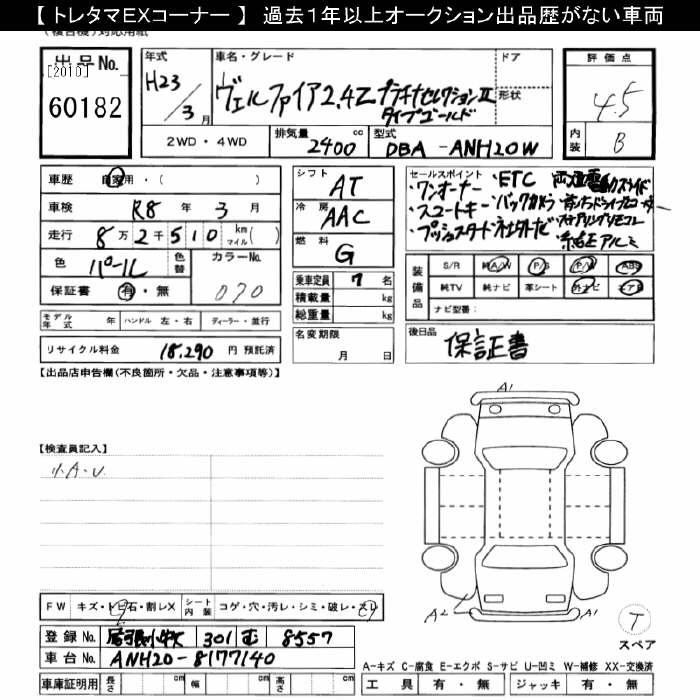 【 トレタマEXコーナー 】 過去１年以上オークション出品歴がない車両
出品No.
[2010]
60182
年式
H23/3月
車名・グレード
ヴェルファイア2.4Z プラチナセレクションⅡ
タイプゴールド
ドア
形状
評価点
4.5
内装 B
2WD・4WD
排気量 2400 cc
型式 DBA-ANH20W
車歴 自家用・( )
車検 R8年 3月
走行 8万2千510 km マイル( )
色 パール
色替
カラーNo. 070
保証書 有・無
モデル年式 年
ハンドル 左・右
ディーラー・並行
リサイクル料金 18,290 円 預託済
シフト AT
冷房 AAC
燃料 G
乗車定員 7名
積載量 kg
総重量 kg
名変期限
月 日
セールスポイント
・ワンオーナー ・ETC
・スマートキー ・バックカメラ
・プッシュスタート
装備品
S/R 純A/W P/S P/W ABS
純TV 純ナビ 革シート 外ナビ エアB
ナビ型番:
後日品 保証書
【出品店申告欄(不良箇所・欠品・注意事項等)】
【検査員記入】
小A・U
A1
A2
A1
T
スペア
FW キズ・トビ石・割レX
シート内装 コゲ・穴・汚レ・シミ・破レ・スレ
登録No. 尾張小牧 301 む 8557
車台No. ANH20-8177140
車庫証明用 長さ cm 幅 cm 高さ cm
A-キズ C-腐食 E-エクボ S-サビ U-凹ミ W-補修 XX-交換済
工具 有・無 ジャッキ 有・無